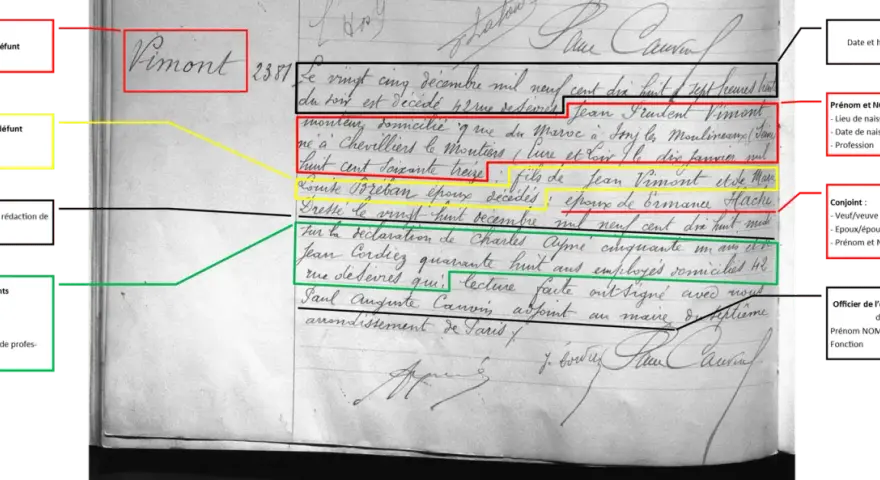 éfunt
éfunt
rédaction de
nts
de profes-
Vimont
2381
Paul Cauvin
Le vingt cinq décembre mil neuf cent dix huit à sept heures
du soir est décédé 42 rue de Sèvres Jean Prudent Vimont
monteur domicilié 9 rue du Maroc à les Moulineaux (Seine
né à Chevilliers le Moutiers (Eure et Loir) le dix janvier mil
huit cent soixante treize ; fils de Jean Vimont et de Marie
Louise Breban époux décédés ; époux de Ermance Hache.
Dressé le vingt huit décembre mil neuf cent dix huit midi
sur la déclaration de Charles Aymé cinquante un ans et de
Jean Cordiez quarante huit ans employés domiciliés 42
rue de Sèvres qui, lecture faite ont signé avec nous
Paul Auguste Cauvin adjoint au maire du septième
arrondissement de Paris
Paul Cauvin
Date et h
Prénom et N
- Lieu de nais
- Date de nais
- Profession
Conjoint :
- Veuf/veuve
- Epoux/épou
- Prénom et N
Officier de l'é
d
Prénom NOM
Fonction